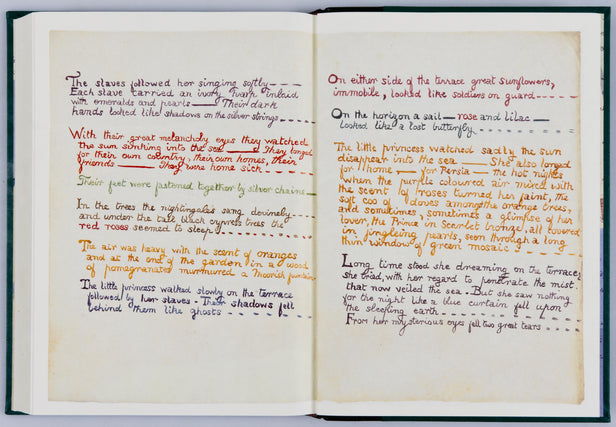 The slaves followed her singing softly — — — —
Each slave carried an ivory harp inlaid
with emeralds and pearls —— Their dark
hands looked like shadows on the silver strings — — — —
With their great melancholy eyes they watched
the sun sinking into the sea —— They longed
for their own country, their own homes, their
friends —— They were home sick — — — —
Their feet were fastened together by silver chains — — —
In the trees the nightingales sang devinely — — — —
and under the tall black cypress trees the
red roses seemed to sleep — — — —
The air was heavy with the scent of oranges
and at the end of the garden in a wood
of pomegranates murmured a Moorish fountain
The little princess walked slowly on the terrace
followed by her slaves - Their shadows fell
behind them like ghosts — — — —
On either side of the terrace great sunflowers,
immobile, looked like soldiers on guard — — — —
On the horizon a sail — rose and lilac —
looked like a lost butterfly — — — —
The little princess watched sadly the sun
disappear into the sea —— She also longed
for home, — for Persia — the hot nights
when the purple coloured air mixed with
the scent of roses turned her faint, the
soft coo of doves amongst the orange trees,
and sometimes, sometimes a glimpse of her
lover, the Prince in Scarlet bronze, all covered
in jingleing pearls, seen through a long
thin window of green mosaic — — — —
Long time stood she dreaming on the terrace,
she tried, with her regard to penetrate the mist
that now veiled the sea. But she saw nothing
for the night like a blue curtain fell upon
the sleeping earth — — — —
From her mysterious eyes fell two great tears — — — —